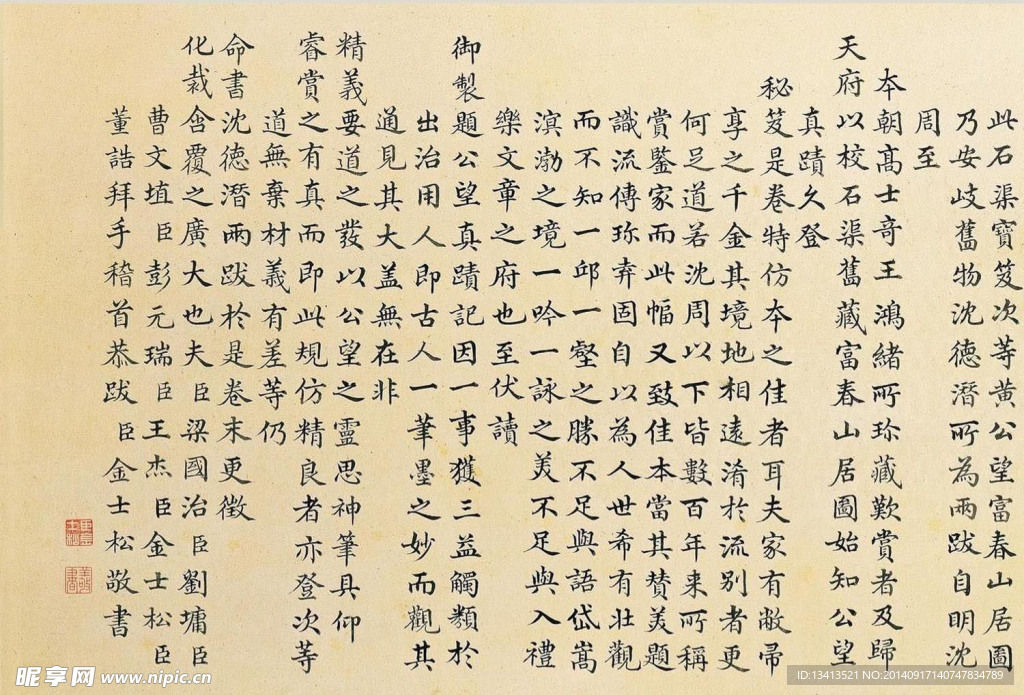 此石渠寶笈次等黃公望富春山居圖
乃安岐舊物沈德潛所為兩跋自明沈
周至
本朝高士奇王鴻緒所珍藏歎賞者及歸
天府以校石渠舊藏富春山居圖始知公望
真蹟久登
秘笈是卷特仿本之佳者耳夫家有敝帚
享之千金其境地相遠淆於流別者更
何足道若沈周以下皆數百年来所稱
賞鑒家而此幅又致佳本當其賛美題
識流傳珎弆固自以為人世希有壯觀
而不知一邱一壑之勝不足與語岱嵩
溟渤之境一吟一詠之美不足與入禮
樂文章之府也至伏讀
御製題公望真蹟記因一事獲三益觸類於
出治用人即古人一筆墨之妙而觀其
通見其大盖無在非
精義要道之發以公望之靈思神筆具仰
睿賞之有真而即此規仿精良者亦登次等
道無棄材義有差等仍
命書沈德潛兩跋於是卷末更徵
化裁含覆之廣大也夫臣梁國治臣劉墉臣
曹文埴臣彭元瑞臣王杰臣金士松臣
董誥拜手稽首恭跋 臣金士松敬書
昵享网 www.nipic.cn
ID:13413521 NO:20140917140747834789